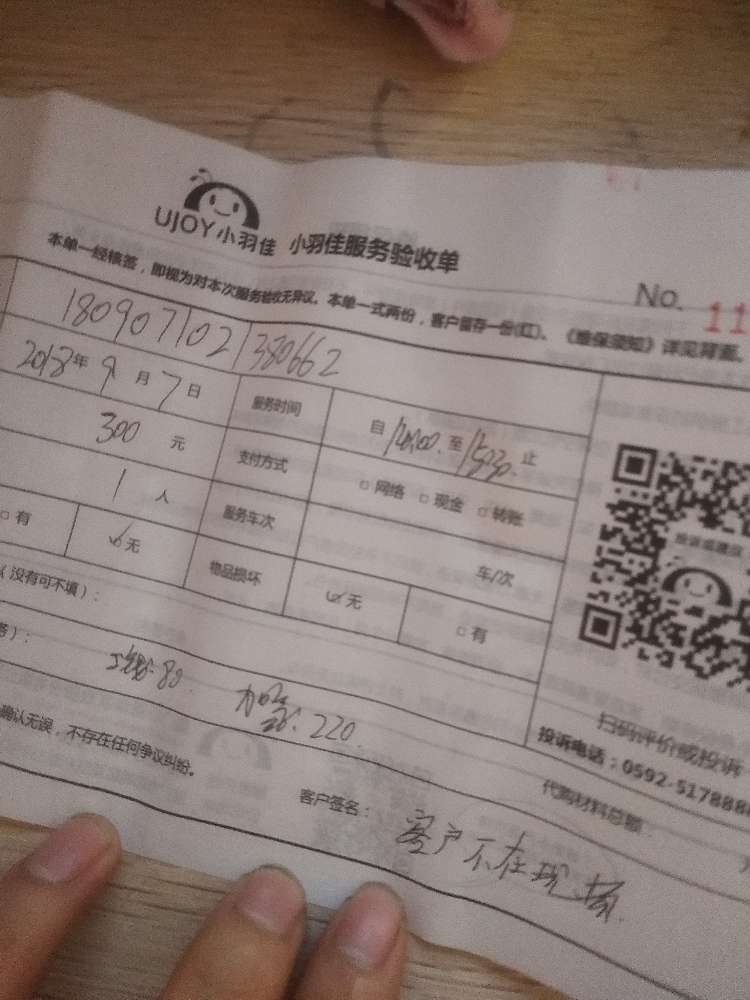 UJOY小羽佳 小羽佳服务验收单
No. 11
本单一经核签，即视为对本次服务验收无异议。本单一式两份，客户留存一份(红)。《维保须知》详见背面。
180907102380662
2018年9月7日 服务时间 自14:00至15:30止
300元 支付方式 □网络 □现金 □转账
1人 服务车次 车/次
□有 ☑无 物品损坏 ☑无 □有
（没有可不填）：
务）： 80. 220.
投诉或建议
扫码评价或投诉
投诉电话：0592-517888
确认无误，不存在任何争议纠纷。
代购材料总额：
客户签名： 客户不在现场